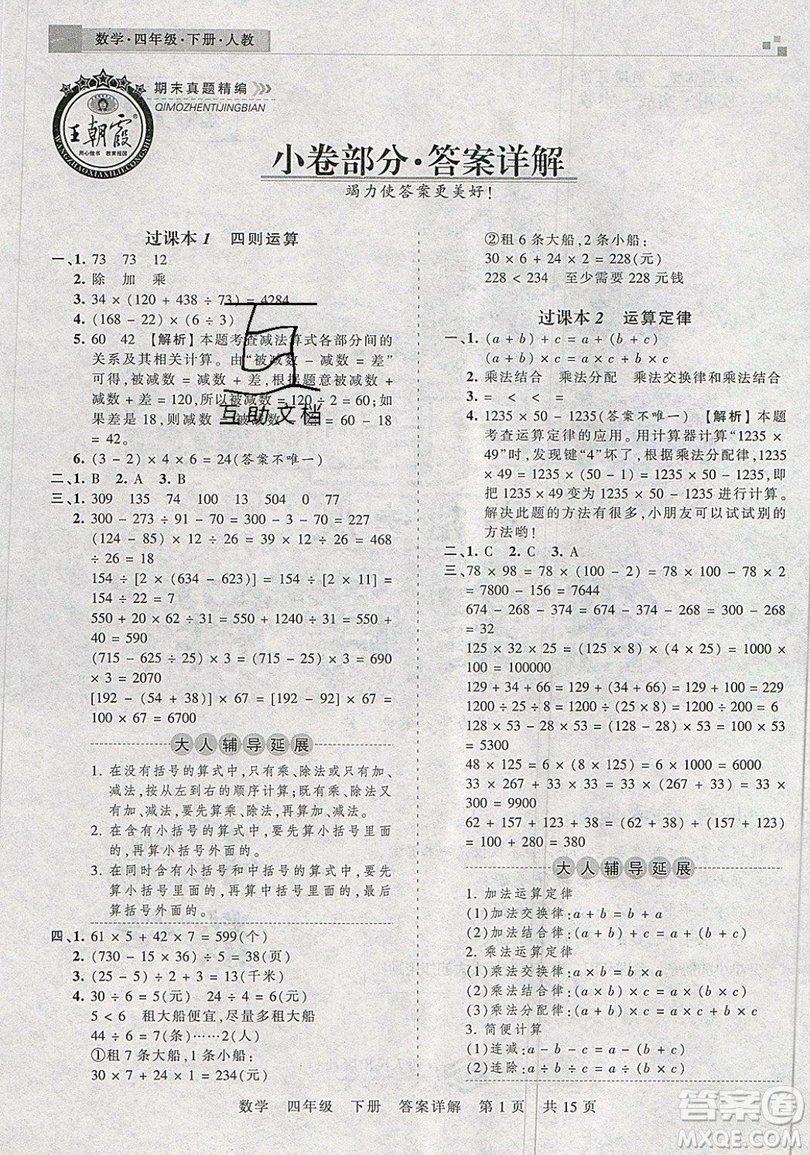 数学·四年级·下册·人教
期末真题精编
QIMOZHENTIJINGBIAN
王朝霞
用心做书 教育报国
WANGZHAOXIAXILIECONGSHU
小卷部分·答案详解
竭力使答案更美好!
过课本1 四则运算
一、1. 73 73 12
2. 除 加 乘
3. 34 × (120 + 438 ÷ 73) = 4284
4. (168 - 22) × (6 ÷ 3)
5. 60 42 【解析】本题考查减法算式各部分间的
关系及其相关计算。由“被减数 - 减数 = 差”
可得,被减数 = 减数 + 差,根据题意被减数 + 减
数 + 差 = 120,所以被减数 = 120 ÷ 2 = 60;如
果差是 18,则减数 = 被减数 - 差 = 60 - 18
= 42。
6. (3 - 2) × 4 × 6 = 24(答案不唯一)
二、1. B 2. A 3. B
三、1. 309 135 74 100 13 504 0 77
2. 300 - 273 ÷ 91 - 70 = 300 - 3 - 70 = 227
(544 - 85) ÷ (12 + 5) ÷
26 ÷ 26 = 18
154 ÷ [2 × (634 - 623)] = 154 ÷ [2 × 11] =
154 ÷ 22 = 7
550 + 20 × 62 ÷ 31 = 550 + 1240 ÷ 31 = 550 +
40 = 590
(715 - 625) ÷ 3 × 69 = 90 ÷ 3 × 69 = 30 ×
69 = 2070
[192 - (54 + 38)] × 67 = [192 - 92] × 67 =
100 × 67 = 6700
大人辅导延展
1. 在没有括号的算式中,只有乘、除法或只有加、
减法,按从左到右的顺序计算;既有乘、除法又有
加、减法,要先算乘、除法,再算加、减法。
2. 在含有小括号的算式中,要先算小括号里面
的,再算小括号外面的。
3. 在同时含有小括号和中括号的算式中,要先算
小括号里面的,再算中括号里面的,最后算
中括号外面的。
四、1. 61 × 5 + 42 × 7 = 599(个)
2. (730 - 15 × 16) ÷ 7 = 70(页)
3. (25 - 5) ÷ 2 + 2 = 12(千米)
4. 30 ÷ 6 = 5(元) 24 ÷ 4 = 6(元)
5 < 6 租大船便宜,尽量多租大船
44 ÷ 6 = 7(条)……2(人)
①租 7 条大船,1 条小船:
30 × 7 + 24 = 234(元)
②租 6 条大船,2 条小船:
30 × 6 + 24 × 2 = 228(元)
228 < 234 至少需要 228 元钱
过课本2 运算定律
一、1. (a + b) + c = a + (b + c)
(a × b) × c = a × (b × c)
2. 乘法结合 乘法分配 乘法交换律和乘法结合
3. = < < =
4. 1235 × 50 - 1235(答案不唯一) 【解析】本题
考查运算定律的应用。用计算器计算“1235 ×
49”时,发现键“4”坏了,根据乘法分配律,1235
× 49 = 1235 × (50 - 1) = 1235 × 50 - 1235,
把 1235 × 49 变为 1235 × 50 - 1235 进行计算。
解决此题的方法有很多,小朋友可以试试别的
方法哟!
二、1. C 2. C 3. A
三、78 × 98 = 78 × (100 - 2) = 78 × 100 - 78 × 2
= 7800 - 156 = 7644
674 - 268 - 374 = 674 - 374 - 268 = 300 - 268
= 32
125 × 32 × 25 = (125 × 8) × (4 × 25) = 1000 ×
100 = 100000
129 + 34 + 66 = 129 + (34 + 66) = 129 + 100 = 229
1200 ÷ 25 ÷ 8 = 1200 ÷ (25 × 8) = 1200 ÷ 200 = 6
128 × 53 - 28 × 53 = (128 - 28) × 53 = 100 × 53
= 5300
48 × 125 = 6 × (8 × 125) = 6 × 1000 = 6000
33 × 302 = 33 × (300 + 2) = 33 × 300 + 33 × 2
= 9966
62 + 157 + 38 + 123 = (62 + 38) + (157 + 123) =
100 + 280 = 380
大人辅导延展
1. 加法运算定律
(1)加法交换律:a + b = b + a
(2)加法结合律:(a + b) + c = a + (b + c)
2. 乘法运算定律
(1)乘法交换律:a × b = b × a
(2)乘法结合律:(a × b) × c = a × (b × c)
(3)乘法分配律:(a + b) × c = a × c + b × c
3. 简便计算
(1)连减:a - b - c = a - (b + c)
(2)连除:a ÷ b ÷ c = a ÷ (b × c)
互助文档
数学 四年级 下册 答案详解 第 1 页 共 15 页
答案圈
MXQE.COM